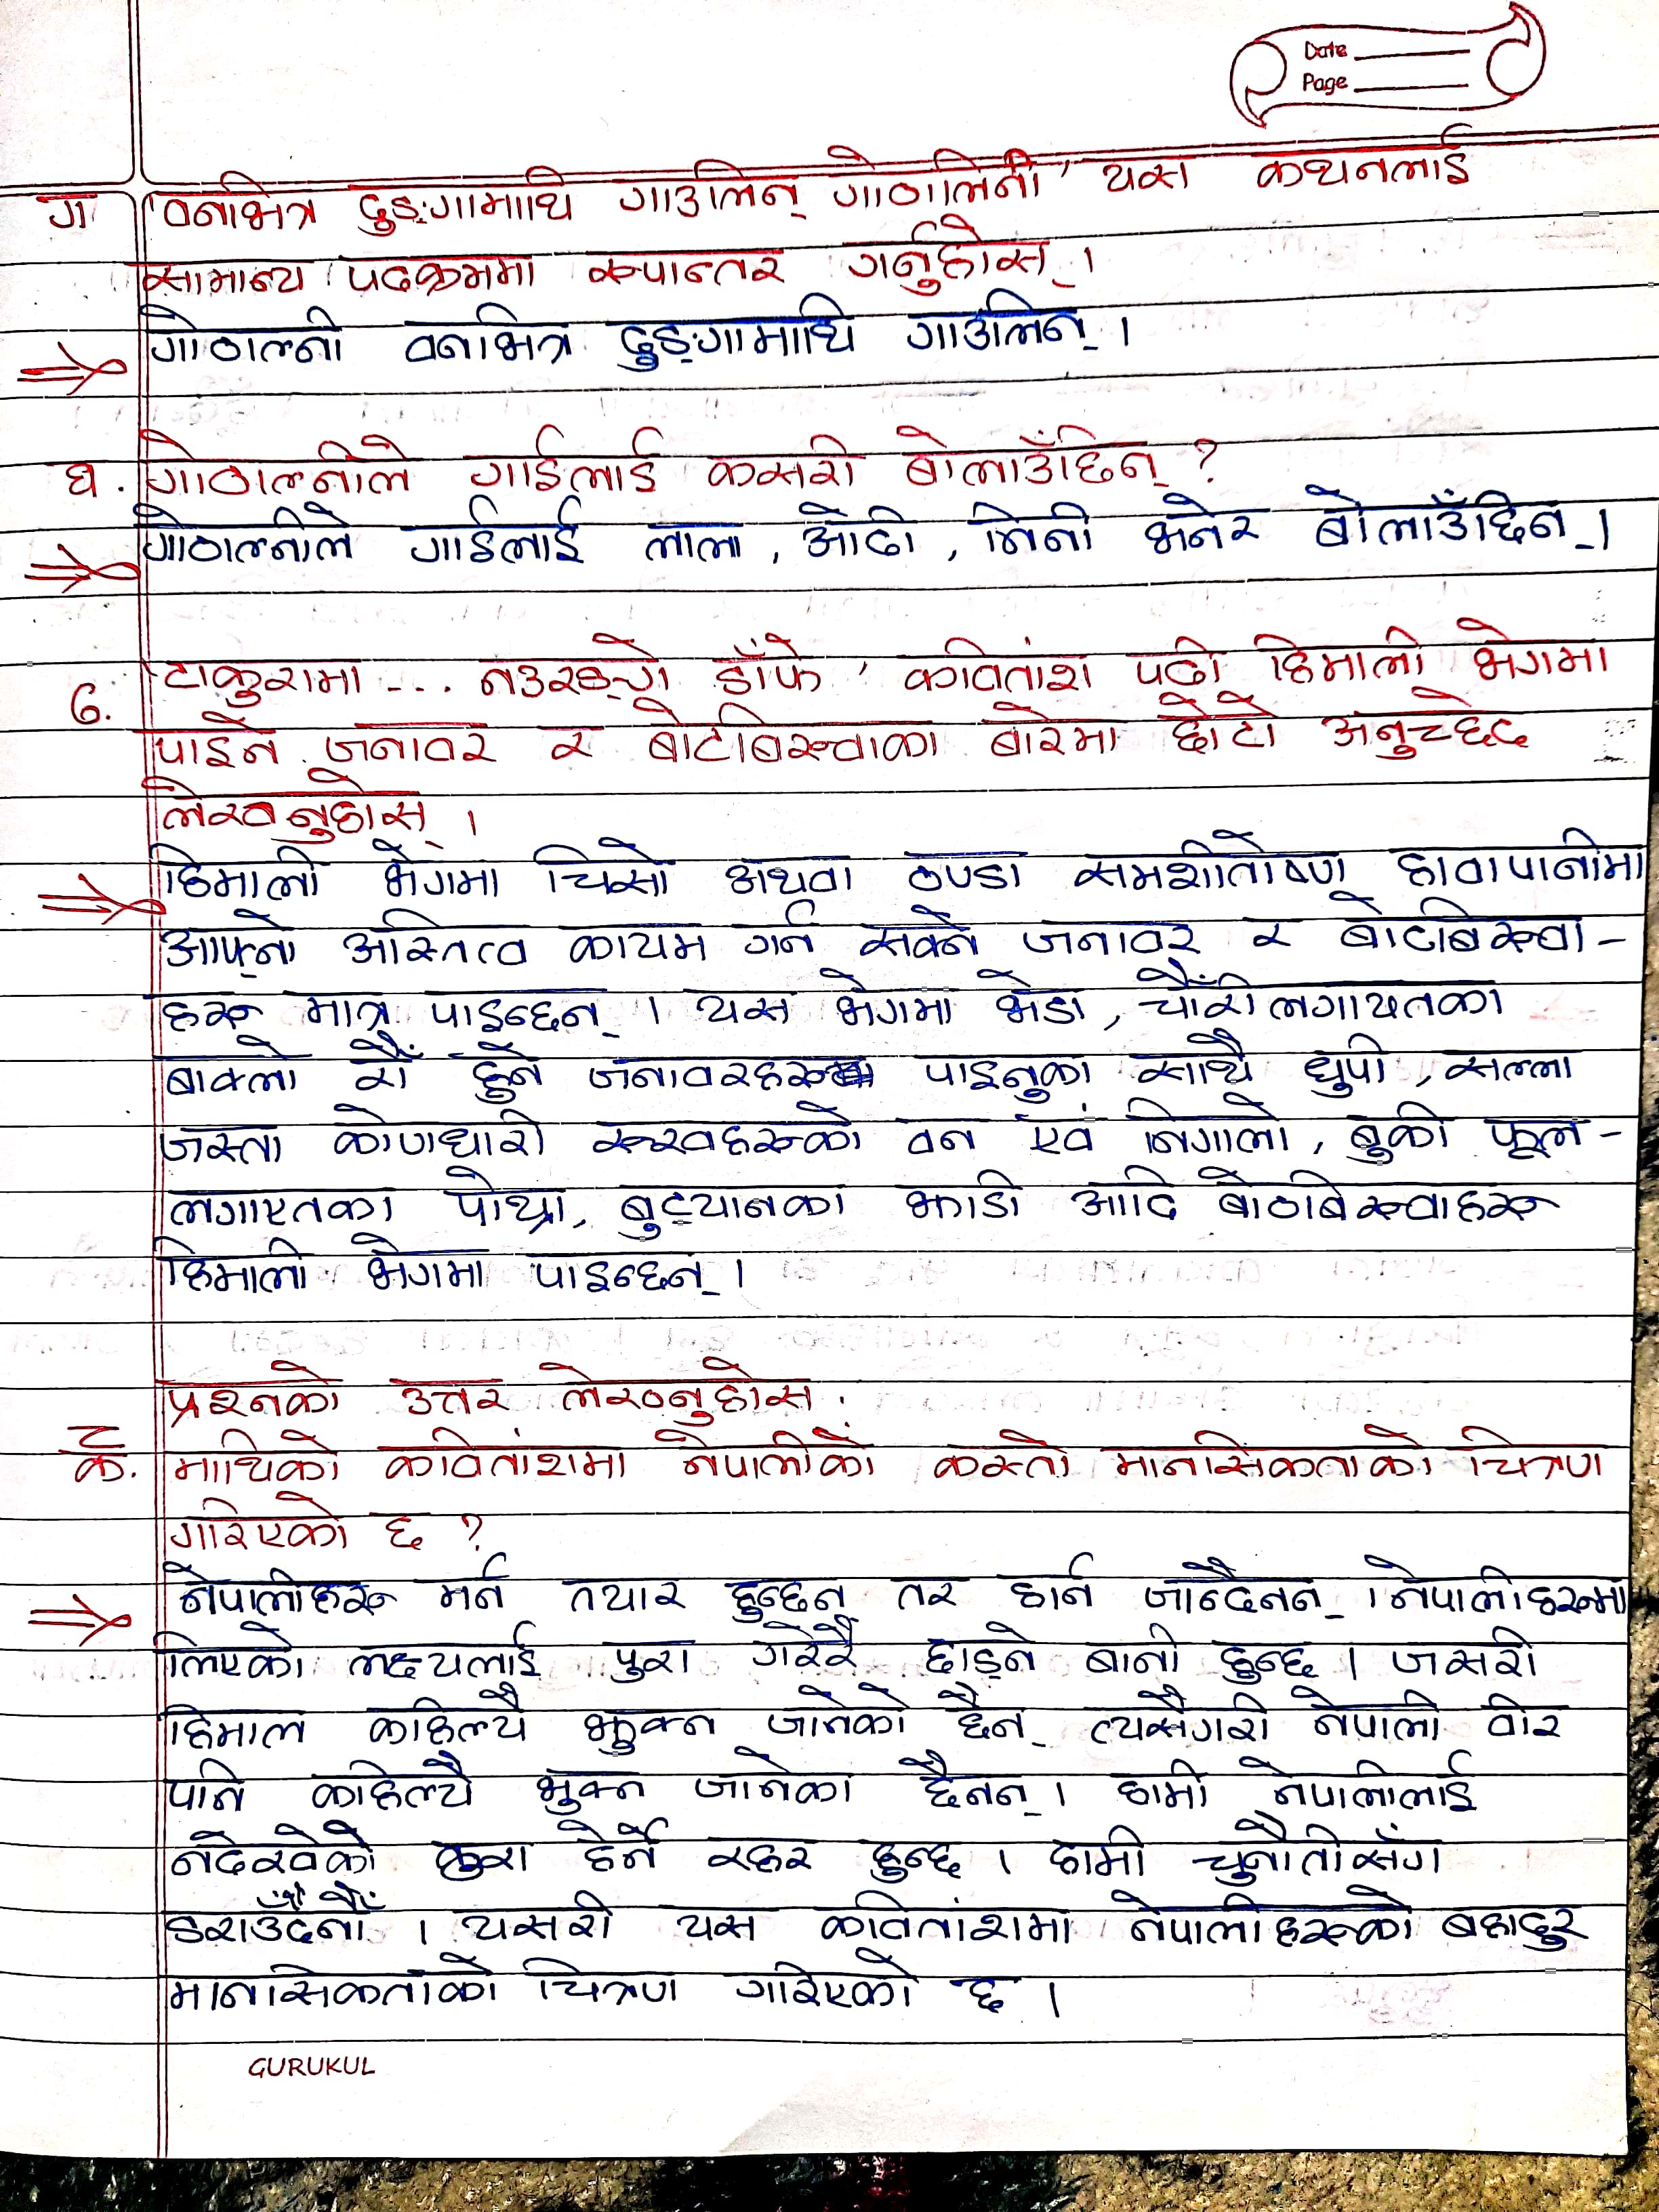 Date
Page
ग 'वनभित्र ढुङ्गामाथि गाउलिन् गोठालिनी' यस कथनलाई
सामान्य पदक्रममा रुपान्तर गर्नुहोस् ।
गोठाल्नी वनभित्र ढुङ्गामाथि गाउलिन् ।
घ. गोठाल्नीले गाईलाई कसरी बोलाउँछिन् ?
गोठाल्नीले गाईलाई लाला, ओढी, निनी भनेर बोलाउँछिन् ।
७. टाकुरामा ... नउरङ्गे डाँफे' कवितांश पढी हिमाली भेगमा
पाइने जनावर र बोटबिरुवाका बारेमा छोटो अनुच्छेद
लेख्नुहोस् ।
हिमाली भेगमा चिसो अथवा ठण्डा समशीतोष्ण हावापानीमा
आफ्नो अस्तित्व कायम गर्न सक्ने जनावर र बोटबिरुवा-
हरू मात्र पाइन्छन् । यस भेगमा भेडा, चौँरी लगायतका
बाक्लो रौँ हुने जनावरहरू पाइनुका साथै धुपी, सल्ला
जस्ता कोणधारी रूखहरूको वन एवं निगालो, बुकी फूल-
लगाएतका पोथ्रा, बुट्यानका झाडी आदि बोठबिरुवाहरू
हिमाली भेगमा पाइन्छन् ।
प्रश्नको उत्तर लेख्नुहोस.
८ क. माथिको कवितांशमा नेपालीको कस्तो मानसिकताको चित्रण
गरिएको छ ?
नेपालीहरू मर्न तयार हुन्छन् तर हार्न जान्दैनन् । नेपालीहरूमा
लिएको लक्ष्यलाई पुरा गरेरै छाड्ने बानी हुन्छ । जसरी
हिमाल कहिल्यै झुक्न जानेको छैन् त्यसैगरी नेपाली वीर
पनि कहिल्यै झुक्न जानेका छैनन् । हामी नेपालीलाई
नदेखेको कुरा हेर्ने रहर हुन्छ । हामी चुनौतीसँग
डराउँदैनौँ । यसरी यस कवितांशमा नेपालीहरूको बहादुर
मानसिकताको चित्रण गरिएको छ ।
GURUKUL